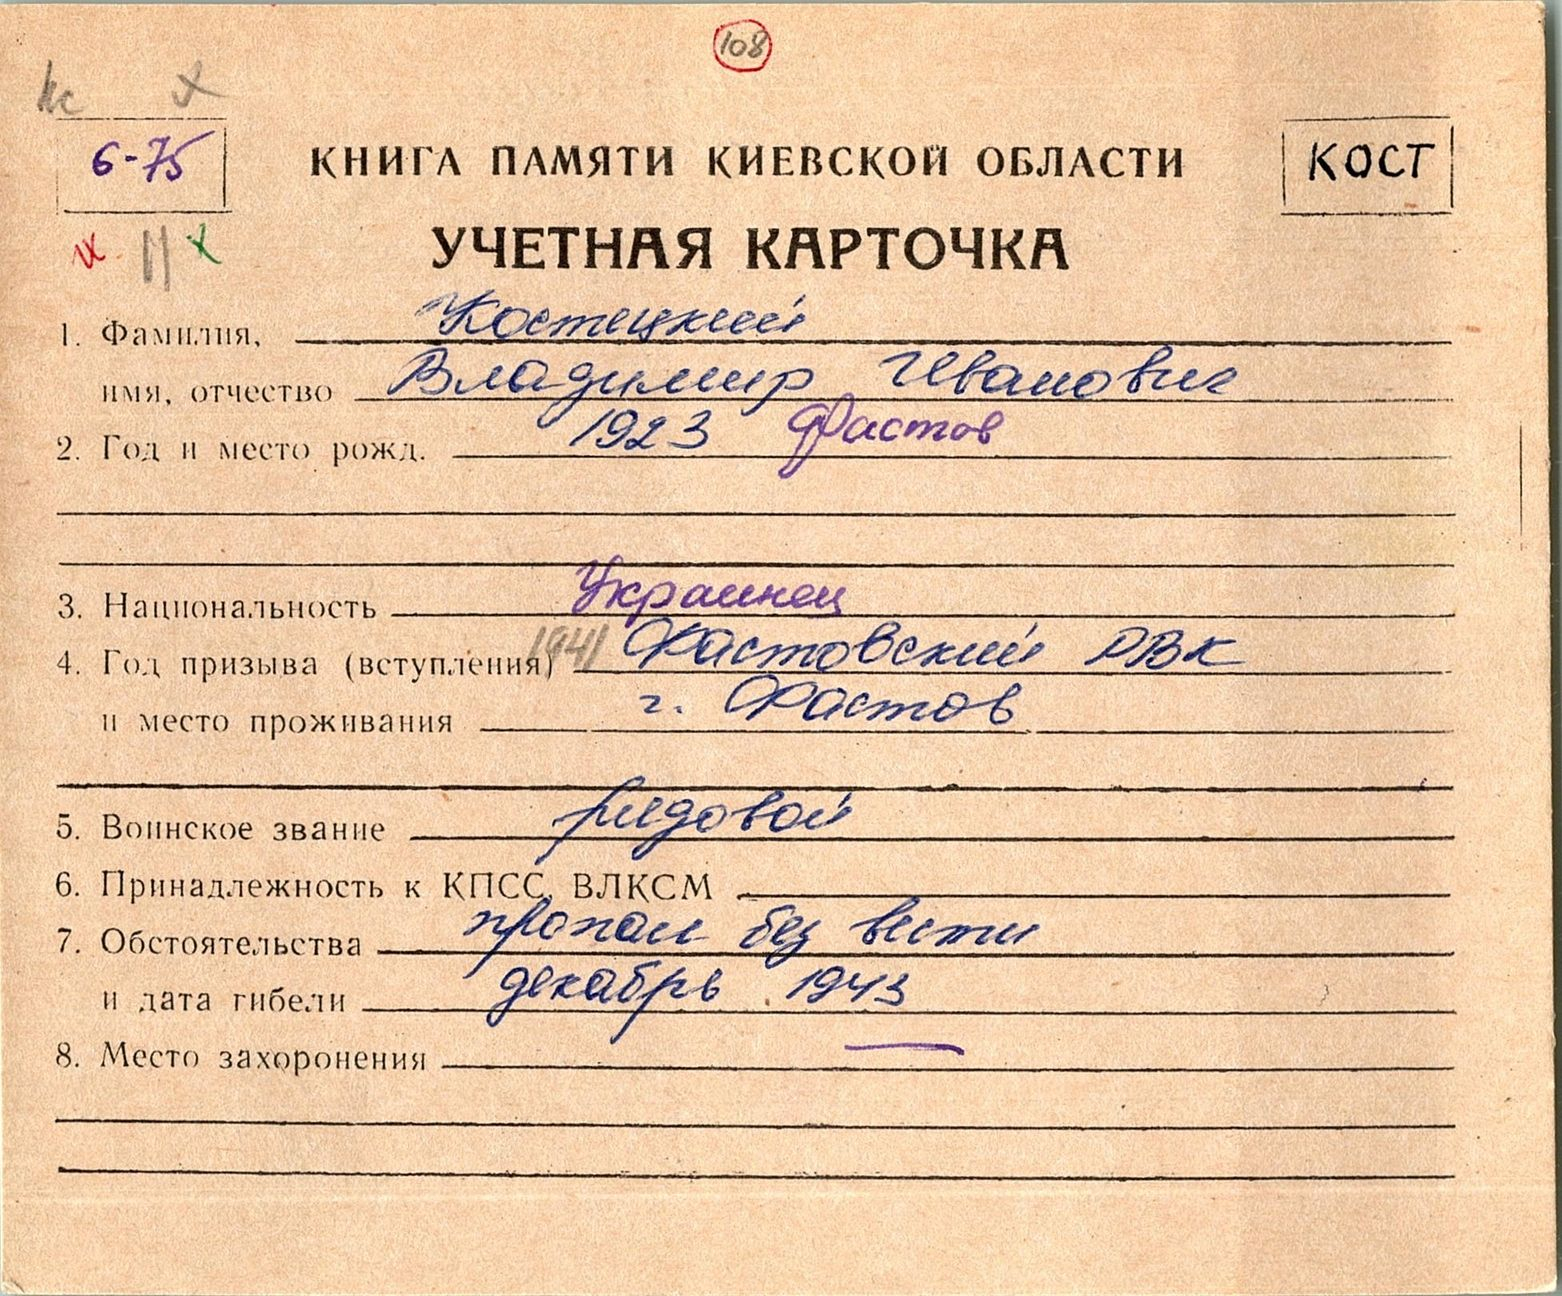 108
6-75
КНИГА ПАМЯТИ КИЕВСКОЙ ОБЛАСТИ
КОСТ
УЧЕТНАЯ КАРТОЧКА
1. Фамилия, Костецкий
имя, отчество Владимир Иванович
2. Год и место рожд. 1923 Фастов
3. Национальность Украинец
4. Год призыва (вступления) 1941 Фастовский РВК
и место проживания г. Фастов
5. Воинское звание рядовой
6. Принадлежность к КПСС, ВЛКСМ
7. Обстоятельства пропал без вести
и дата гибели декабрь 1943
8. Место захоронения —